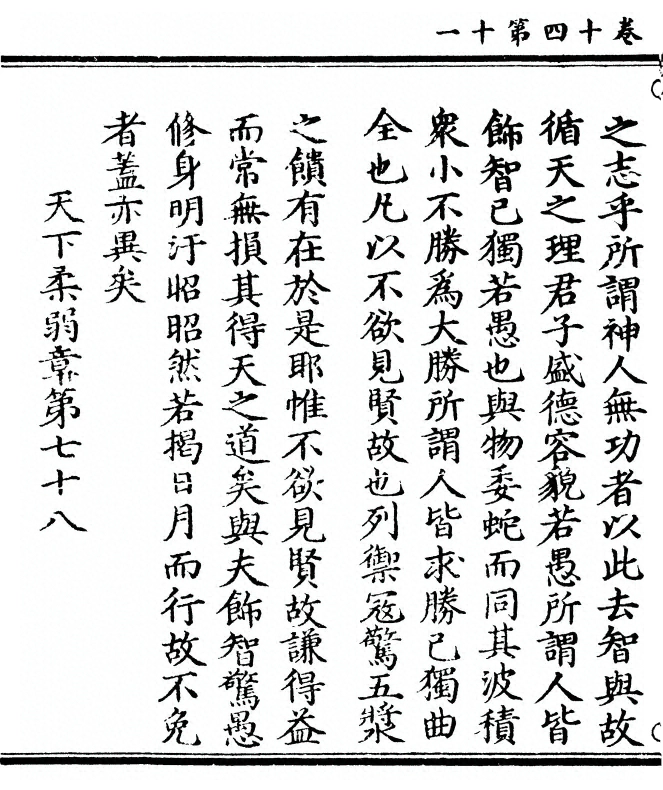 卷十四第十一
之志乎所謂神人無功者以此去智與故
循天之理君子盛德容貌若愚所謂人皆
飾智己獨若愚也與物委蛇而同其波積
衆小不勝爲大勝所謂人皆求勝己獨曲
全也凡以不欲見賢故也列禦冦驚五漿
之饋有在於是耶惟不欲見賢故謙得益
而常無損其得天之道矣與夫飾智驚愚
修身明汙昭昭然若揭日月而行故不免
者蓋亦異矣
天下柔弱章第七十八